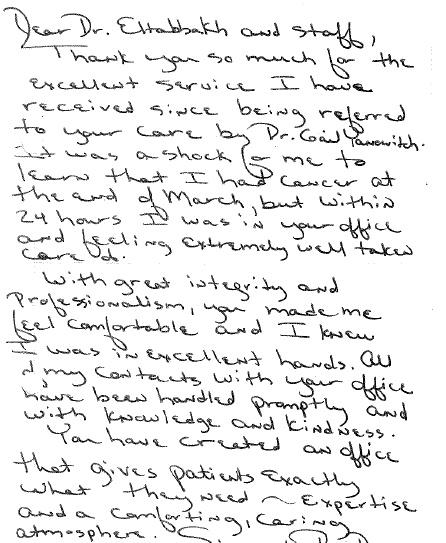 Dear Dr. Eltabbakh and staff,
Thank you so much for the
excellent service I have
received since being referred
to your care by Dr. Gail Yanowitch.
It was a shock for me to
learn that I had cancer at
the end of March, but within
24 hours I was in your office
and feeling extremely well taken
care of.
With great integrity and
Professionalism, you made me
feel comfortable and I knew
I was in excellent hands. All
of my contacts with your office
have been handled promptly and
with knowledge and kindness.
You have created an office
that gives patients exactly
what they need ~ Expertise
and a comforting, caring
atmosphere.